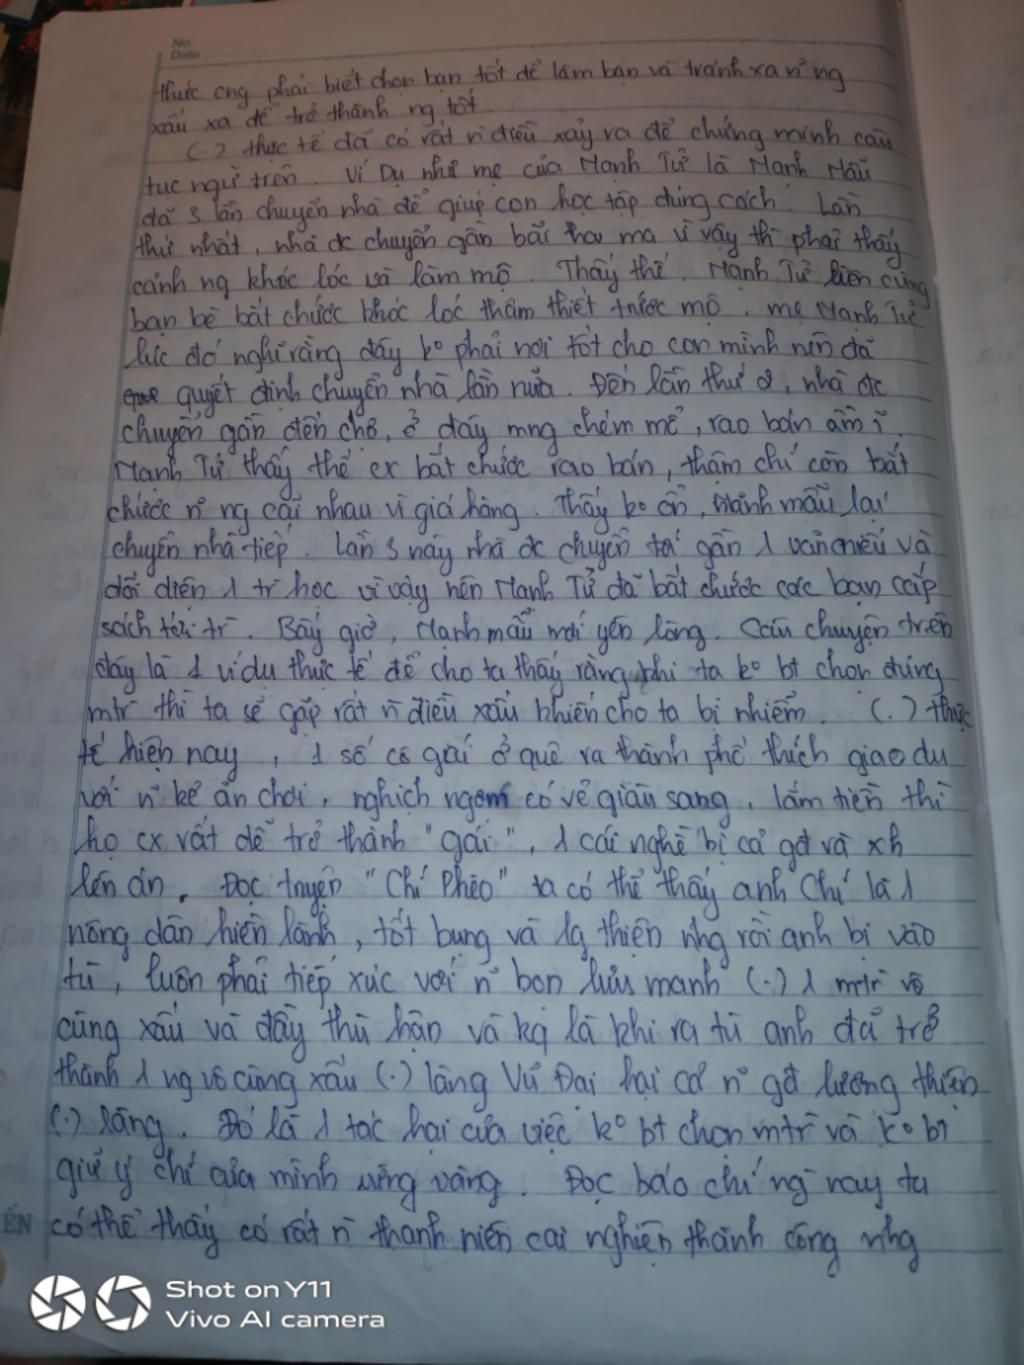 No.
Date
thức cng phải biết chọn bạn tốt để làm bạn và tránh xa n~ ng
xấu xa để trở thành ng tốt.
(.) thực tế đã có rất n` điều xảy ra để chứng minh câu
tục ngữ trên. Ví Dụ như mẹ của Mạnh Tử là Mạnh Mẫu
đã 3 lần chuyển nhà để giúp con học tập đúng cách. Lần
thứ nhất, nhà đc chuyển gần bãi tha ma vì vậy thì phải thấy
cảnh ng khóc lóc và làm mộ. Thấy thế, Mạnh Tử liền cùng
bạn bè bắt chước khóc lóc thảm thiết trước mộ. mẹ Mạnh Tử
lúc đó nghĩ rằng đây ko phải nơi tốt cho con mình nên đã
quyết định chuyển nhà lần nữa. Đến lần thứ 2, nhà đc
chuyển gần đến chợ, ở đây mng chém mổ, rao bán ầm ĩ.
Mạnh Tử thấy thế cx bắt chước rao bán, thậm chí còn bắt
chước n~ ng cãi nhau vì giá hàng. Thấy ko ổn, Mạnh mẫu lại
chuyển nhà tiếp. Lần 3 này nhà đc chuyển tới gần 1 văn miếu và
đối diện 1 tr` học vì vậy nên Mạnh Tử đã bắt chước các bạn cắp
sách tới tr`. Bấy giờ, Mạnh mẫu mới yên lòng. Câu chuyện trên
đây là 1 ví dụ thực tế để cho ta thấy rằng khi ta ko bt chọn đúng
mtr` thì ta sẽ gặp rất n` điều xấu khiến cho ta bị nhiễm. (.) thực
tế hiện nay, 1 số cô gái ở quê ra thành phố thích giao du
với n~ kẻ ăn chơi, nghịch ngợm có vẻ giàu sang, lắm tiền thì
họ cx rất dễ trở thành "gái", 1 cái nghề bị cả gđ và xh
lên án. Đọc truyện "Chí Phèo" ta có thể thấy anh Chí là 1
nông dân hiền lành, tốt bụng và lg thiện nhg rồi anh bị vào
tù, luôn phải tiếp xúc với n~ bọn lưu manh (.) 1 mtr` vô
cùng xấu và đầy thù hận và kq là khi ra tù anh đã trở
thành 1 ng vô cùng xấu (.) làng Vũ Đại hại cả n~ gđ lương thiện
(.) làng. Đó là 1 tác hại của việc ko bt chọn mtr` và ko bt
giữ ý chí của mình vững vàng. Đọc báo chí ng` nay ta
có thể thấy có rất n` thanh niên cai nghiện thành công nhg
ẾN
Shot on Y11
Vivo AI camera